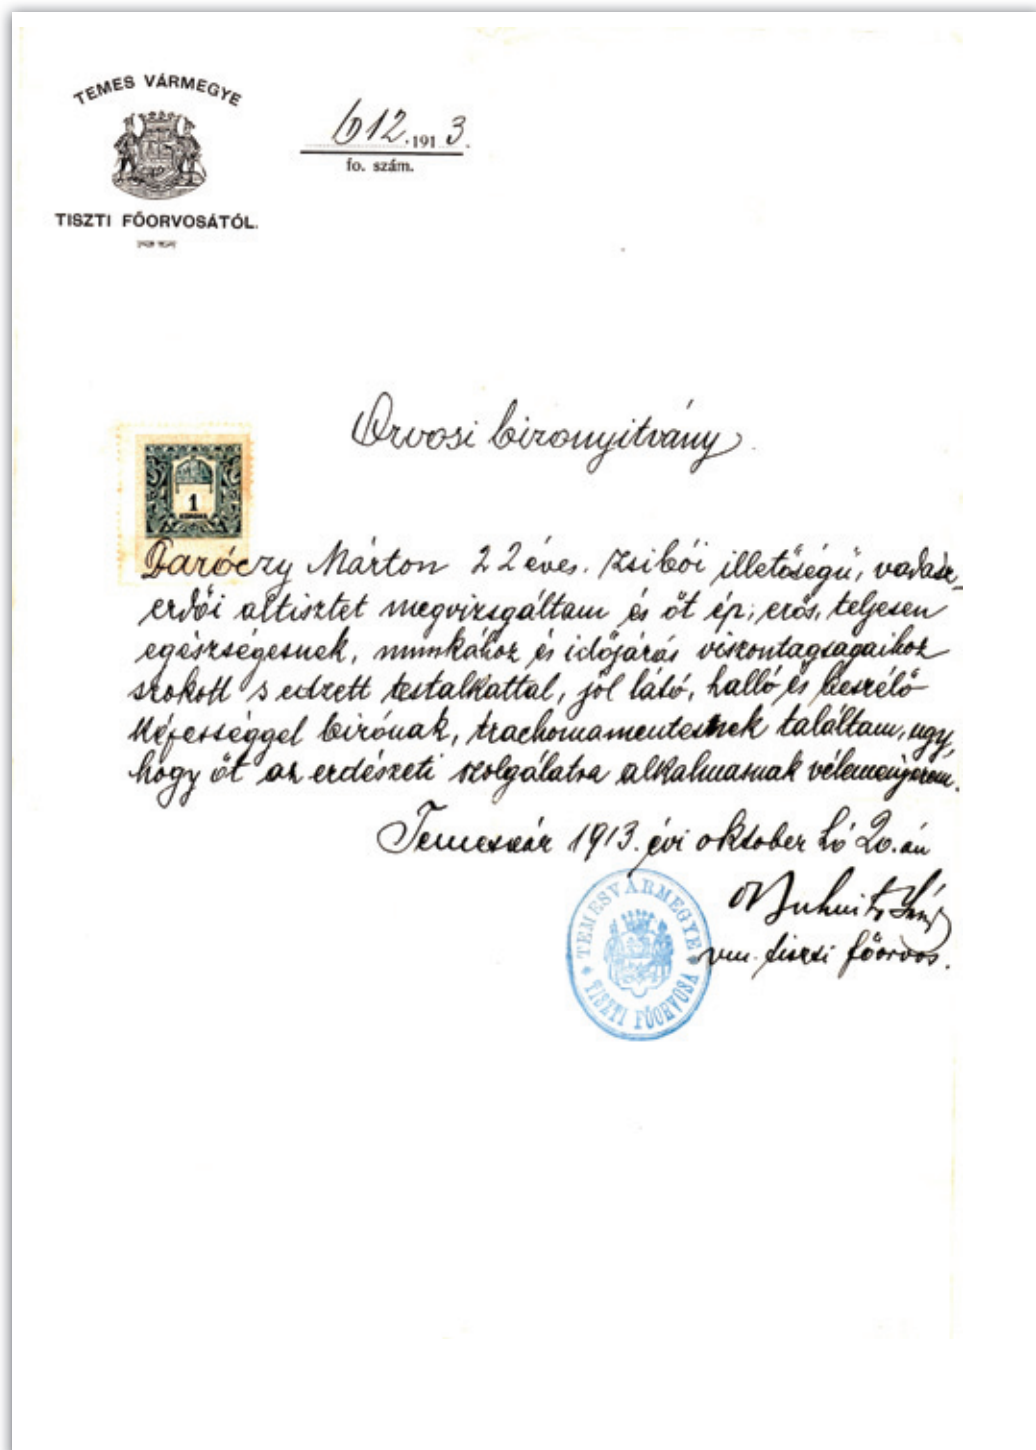 TEMES VÁRMEGYE
TISZTI FŐORVOSÁTÓL.
612. 1913.
fo. szám.
Orvosi bizonyitvány.
1
KORONA
Daróczy Márton 22 éves. zsibói illetőségü, vadász-
erdői altisztet megvizsgáltam és őt ép, erős, teljesen
egészségesnek, munkához és időjárás viszontagságaihoz
szokott s edzett testalkattal, jól látó, halló és beszélő
képességgel birónak, trachomamentesnek találtam, ugy,
hogy őt az erdészeti szolgálatra alkalmasnak véleményezem.
Temesvár 1913. évi oktober hó 20.án
vm. tiszti főorvos.
TEMESVÁRMEGYE
TISZTI FŐORVOSA